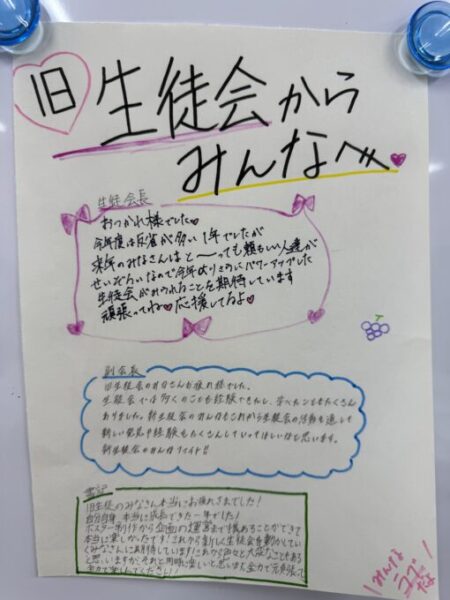 旧生徒会から
みんなへ
生徒会長
おつかれ様でした
今年度は反省が多い1年でしたが
来年のみなさんはと〜っても頼もしい人達が
せいぞろいなので今年よりさらにパワーアップした
生徒会がみられることを期待しています
頑張ってね 応援してるよ
副会長
旧生徒会のみなさんお疲れ様でした。
生徒会では多くのことを経験できたし、学べたこともたくさん
ありました。新生徒会のみんなもこれから生徒会の活動を通して
新しい発見や経験もたくさんしていってほしいなと思います。
新生徒会のみんなファイト!!
書記
旧生徒のみなさん本当にお疲れさまでした!
自分自身、本当に成長できた一年でした!
ポスター制作から企画の運営まで携わることができて
本当に楽しかったです!これから新しく生徒会を動かしていく
みなさんにも期待しています!これから色々と大変なこともある
と思いますが、それと同時に楽しいと思います。全力で元気張って
みんな
ヨブ
だよ